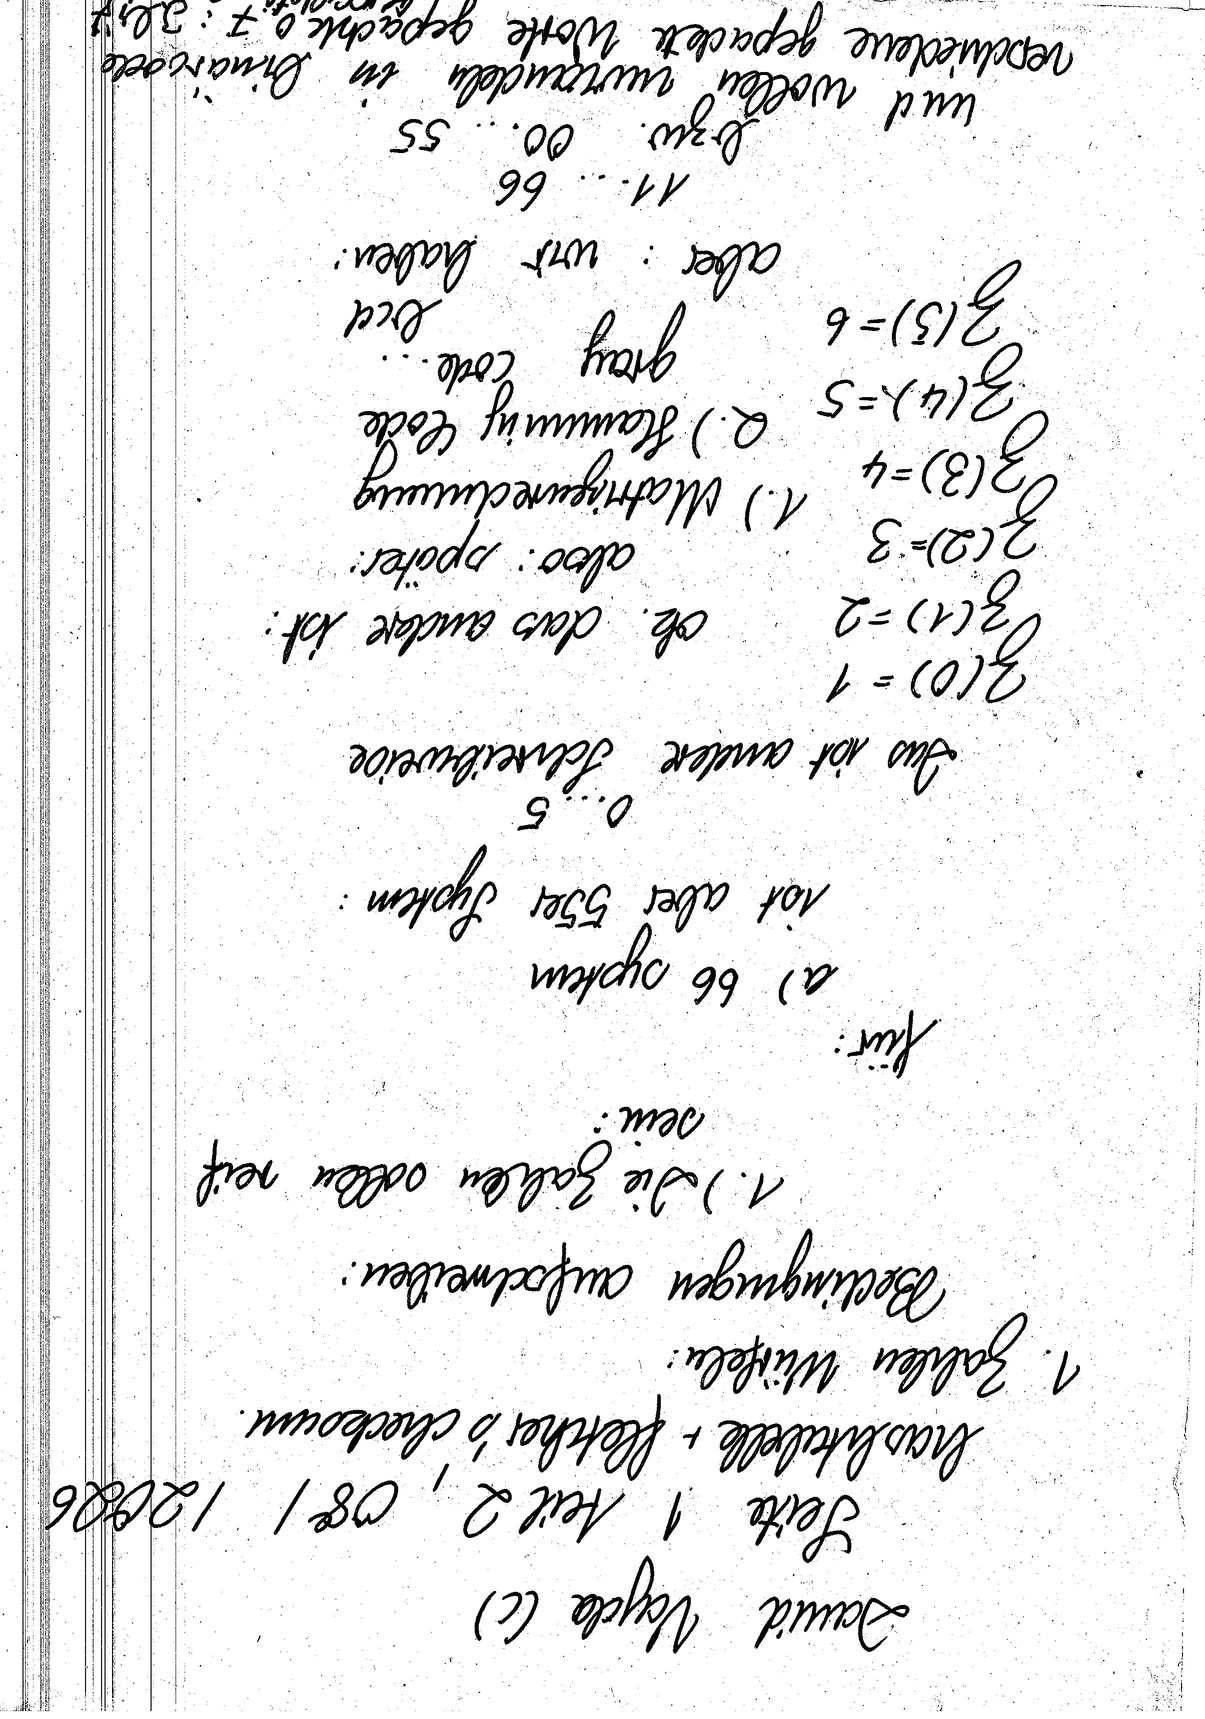 David Vajda (C)
Seite 1 teil 2, 08/120826
hashtabelle + fletcher's checksum.
1. Zahlen Würfeln:
Bedingungen aufschreiben:
1.) Die Zahlen sollen reif
sein:
für:
a) 66 system
ist aber 55er System:
0...5
Das ist andere Schreibweise
z(0) = 1
z(1) = 2
z(2) = 3
z(3) = 4
z(4) = 5
z(5) = 6
ok. das andere ist:
also: später:
1.) Matrizenrechnung
2.) Hamming Code
gray code...
bcd
aber: wir haben:
11... 66
bzw. 00... 55
und wollen umwandeln in binärcode
verschiedene gepackte Worte gepackte 0 7: